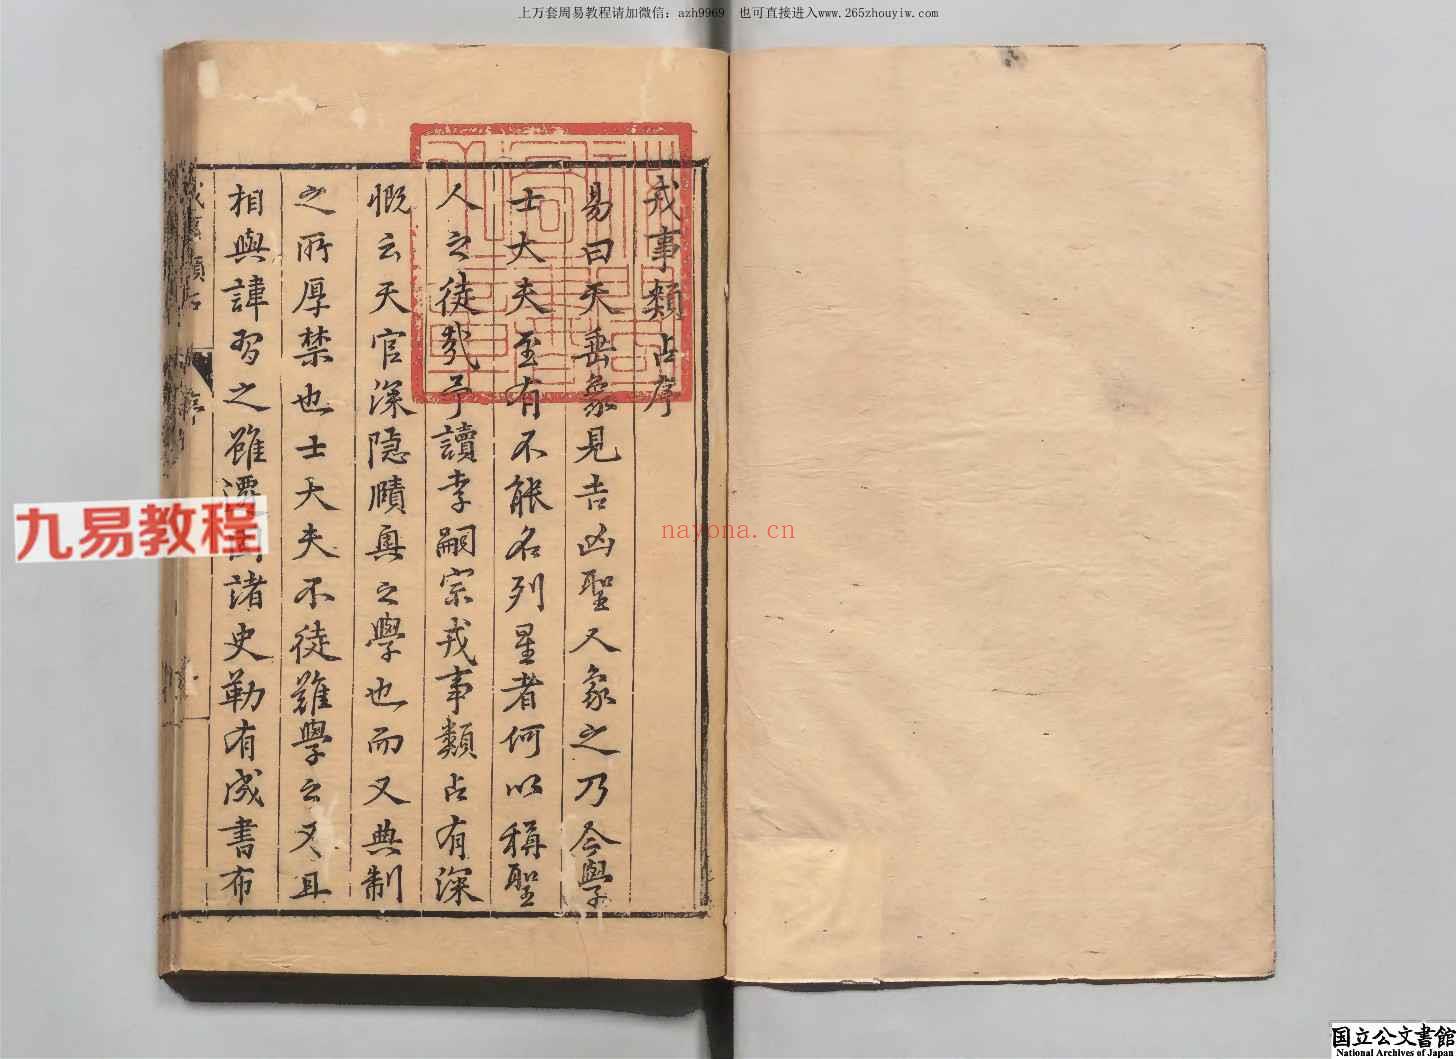 上万套周易教程请加微信：azh9969　也可直接进入www.265zhouyiw.com
戎事類占序
易曰天垂象見吉凶聖人象之乃今學
士大夫至有不能名列星者何以稱聖
人之徒哉予讀李嗣宗戎事類占有深
慨云天官深隱賾奧之學也而又典制
之所厚禁也士大夫不徒難學之又且
相與諱習之雖遷固諸史勒有成書布
類占
序
九易教程
nayona.cn
国立公文書館
National Archives of Japan